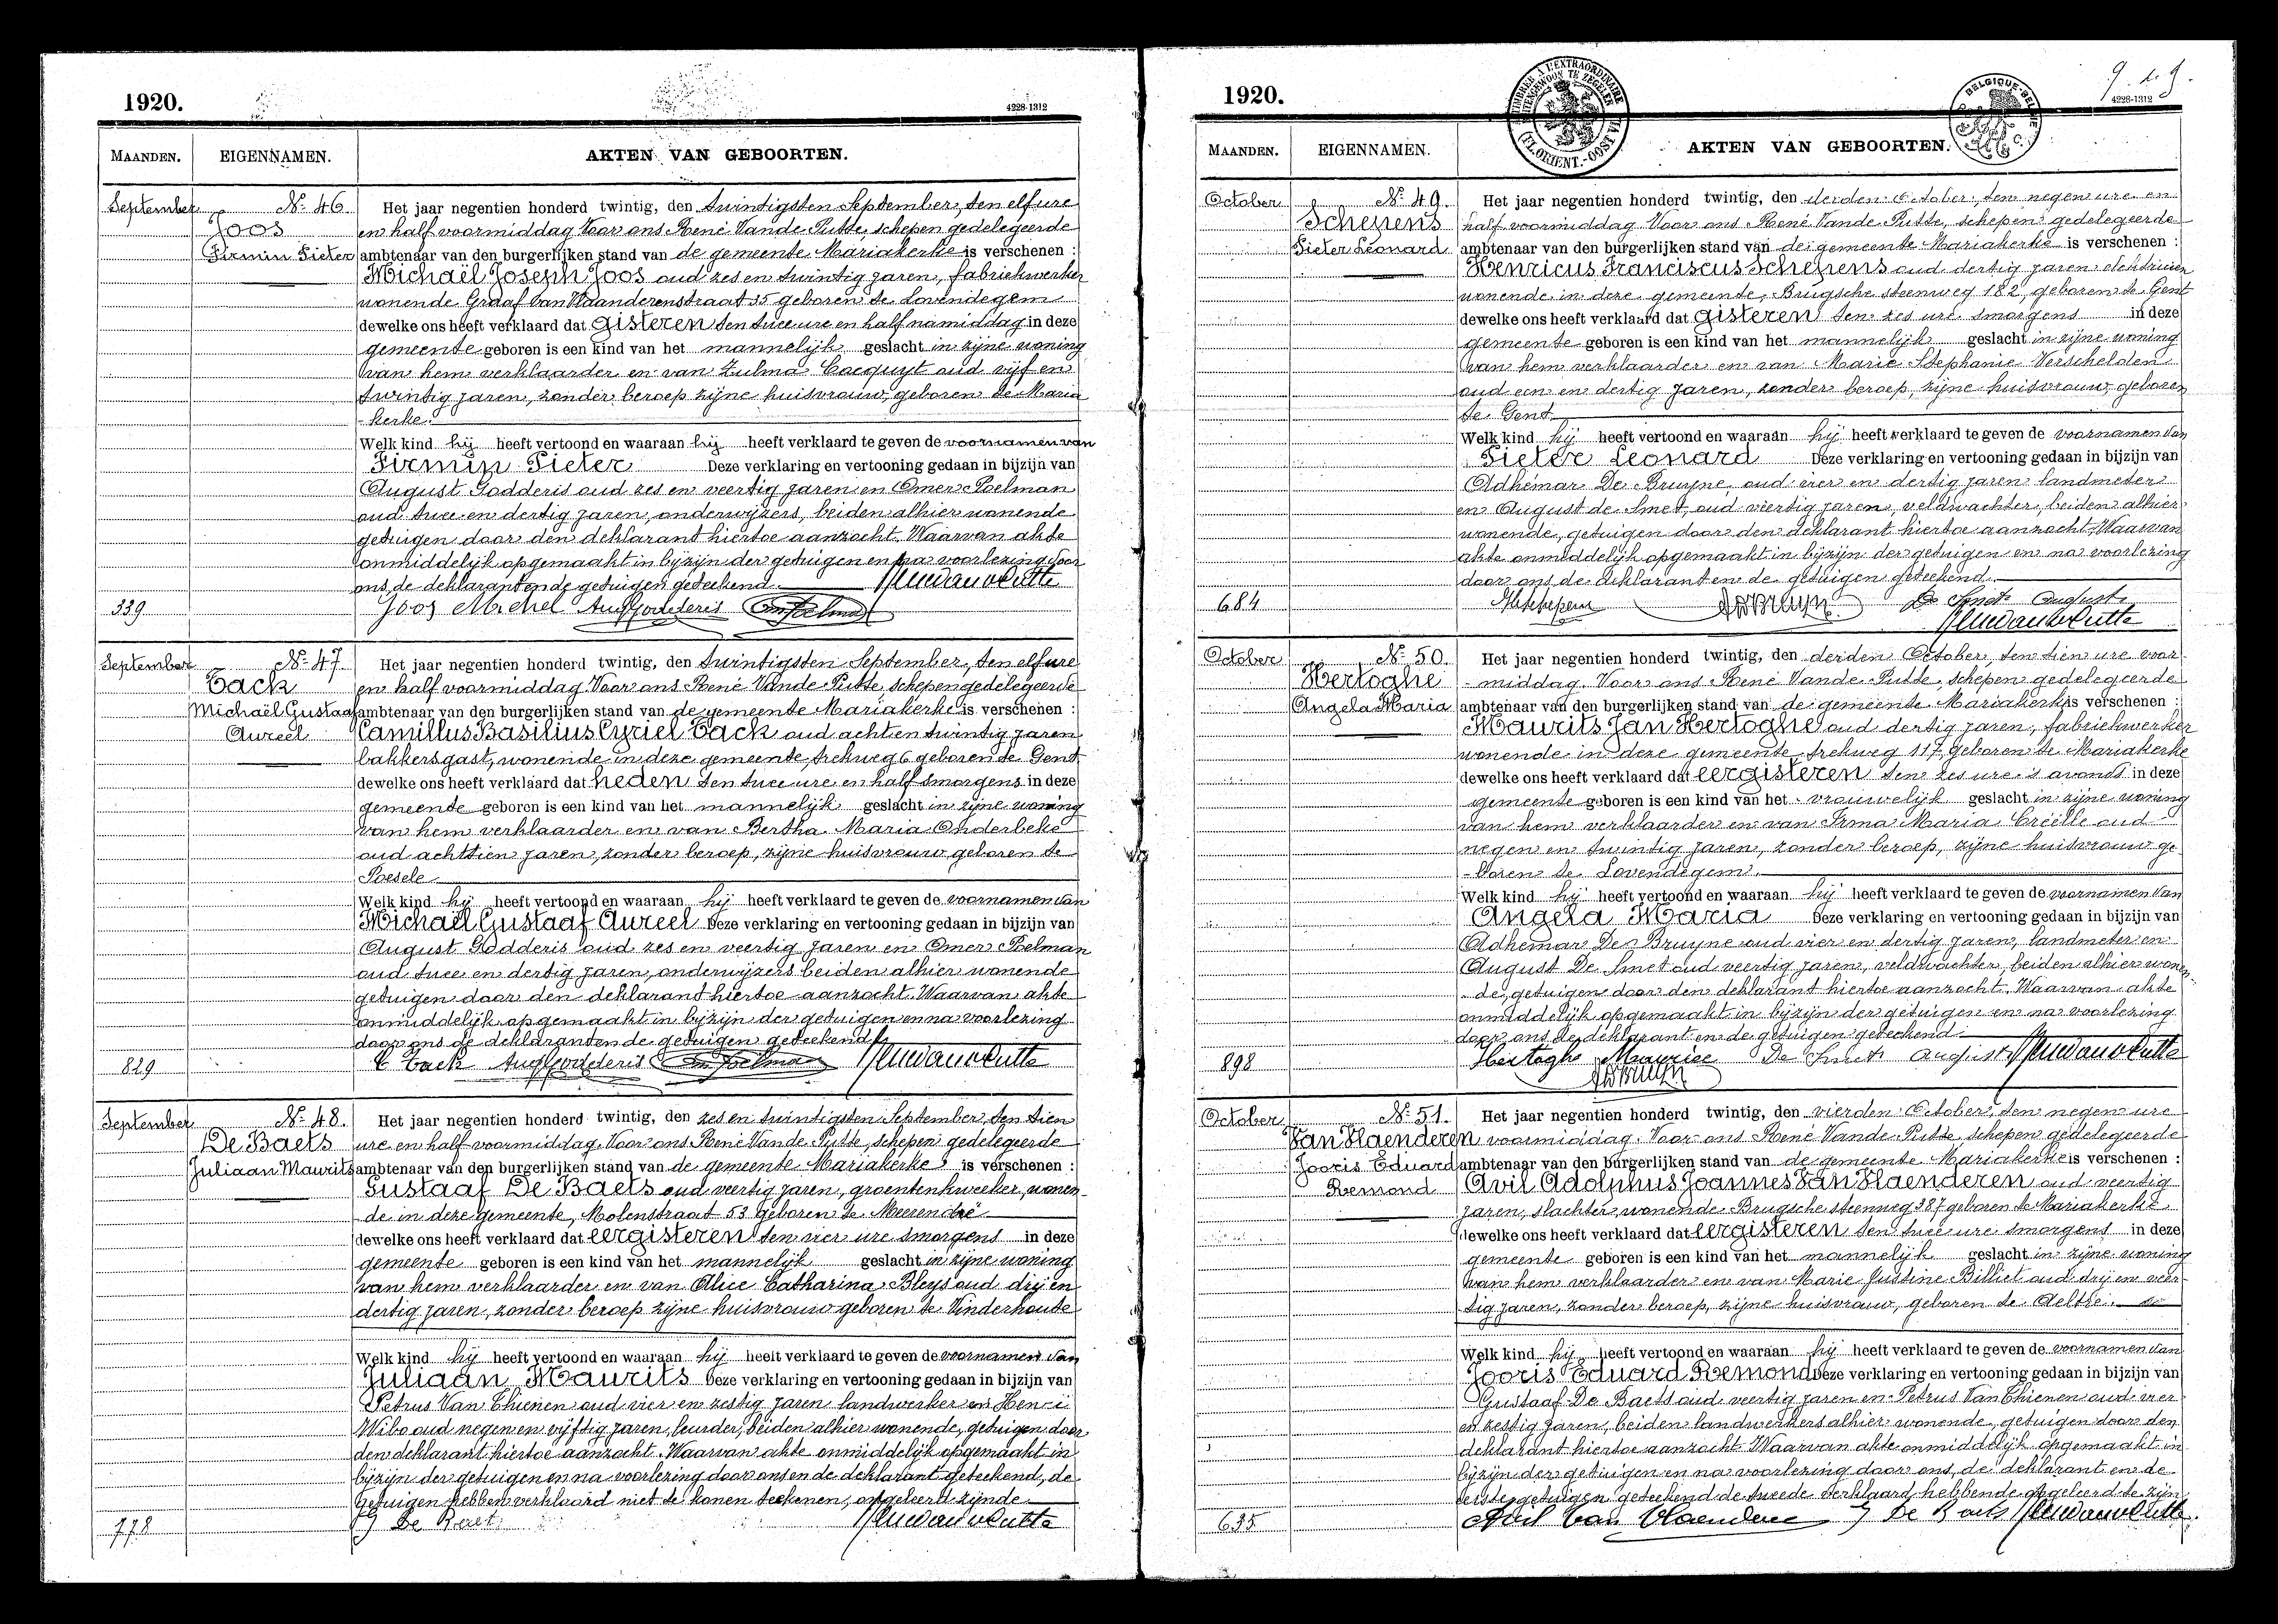 1920.
4228-1312
MAANDEN.
EIGENNAMEN.
AKTEN VAN GEBOORTEN.
September
Nº 46.
Joos
Firmin Pieter
Het jaar negentien honderd twintig, den twintigsten September, ten elf ure
en half voormiddag Voor ons René Vande Putte, schepen gedelegeerde
ambtenaar van den burgerlijken stand van de gemeente Mariakerke is verschenen :
Michaël Joseph Joos oud zes en twintig jaren, fabriekwerker
wonende Graaf van Vlaanderenstraat 35 geboren te Lovendegem
dewelke ons heeft verklaard dat gisteren ten twee ure en half namiddag in deze
gemeente geboren is een kind van het mannelijk geslacht in zijne woning
van hem verklaarder en van Zulma Cocquyt oud vijf en
twintig jaren, zonder beroep zijne huisvrouw, geboren te Maria
-kerke.
Welk kind hij heeft vertoond en waaraan hij heeft verklaard te geven de voornamen van
Firmin Pieter Deze verklaring en vertooning gedaan in bijzijn van
August Godderis oud zes en veertig jaren en Omer Poelman
oud twee en dertig jaren, onderwijzers, beiden alhier wonende
getuigen door den deklarant hiertoe aanzocht. Waarvan akte
onmiddelijk opgemaakt in bijzijn der getuigen en na voorlezing door
ons de deklarant en de getuigen geteekend.
Joos Michel Aug Godderis Om Poelman
339
September
Nº 47.
Tack
Michaël Gustaaf
Aureel
Het jaar negentien honderd twintig, den twintigsten September, ten elf ure
en half voormiddag Voor ons René Vande Putte, schepen gedelegeerde
ambtenaar van den burgerlijken stand van de gemeente Mariakerke is verschenen :
Camillus Basilius Cyriel Tack oud acht en twintig jaren
bakkersgast, wonende in deze gemeente trekweg 6 geboren te Gent
dewelke ons heeft verklaard dat heden ten twee ure en half smorgens in deze
gemeente geboren is een kind van het mannelijk geslacht in zijne woning
van hem verklaarder en van Bertha Maria Onderbeke
oud achttien jaren, zonder beroep, zijne huisvrouw geboren te
Poesele
Welk kind hij heeft vertoond en waaraan hij heeft verklaard te geven de voornamen van
Michaël Gustaaf Aureel Deze verklaring en vertooning gedaan in bijzijn van
August Godderis oud zes en veertig jaren en Omer Poelman
oud twee en dertig jaren, onderwijzers beiden alhier wonende
getuigen door den deklarant hiertoe aanzocht. Waarvan akte
onmiddelijk opgemaakt in bijzijn der getuigen en na voorlezing
door ons de deklarant en de getuigen geteekend
C Tack Aug Godderis Om Poelman
829
September
Nº 48.
De Baets
Juliaan Maurits
Het jaar negentien honderd twintig, den zes en twintigsten September, ten tien
ure en half voormiddag. Voor ons René Vande Putte, schepen gedelegeerde
ambtenaar van den burgerlijken stand van de gemeente Mariakerke is verschenen :
Gustaaf De Baets oud veertig jaren, groentenkweeker, wonen-
de in deze gemeente, Molenstraat 53 geboren te Meerendré
dewelke ons heeft verklaard dat eergisteren ten vier ure smorgens in deze
gemeente geboren is een kind van het mannelijk geslacht in zijne woning
van hem verklaarder en van Alice Catharina Bleys oud drij en
dertig jaren, zonder beroep zijne huisvrouw geboren te Vinderhoute
Welk kind hij heeft vertoond en waaraan hij heeft verklaard te geven de voornamen van
Juliaan Maurits Deze verklaring en vertooning gedaan in bijzijn van
Petrus Van Thienen oud vier en zestig jaren landwerker en Henri
Wibo oud negen en vijftig jaren, leurder, beiden alhier wonende, getuigen door
den deklarant hiertoe aanzocht. Waarvan akte onmiddelijk opgemaakt in
bijzijn der getuigen en na voorlezing door ons en de deklarant geteekend, de
getuigen hebben verklaard niet te konen teekenen, ongeleerd zijnde
G De Baets
778
1920.
4228-1312
TIMBRE A L'EXTRAORDINAIRE
BUITENGEWOON TE ZEGELEN
(FL. ORIENT.-OOST VLA
BELGIQUE-BELGIE
MAANDEN.
EIGENNAMEN.
AKTEN VAN GEBOORTEN.
October
Nº 49.
Scheirens
Pieter Leonard
Het jaar negentien honderd twintig, den derden October, ten negen ure en
half voormiddag Voor ons René Vande Putte, schepen gedelegeerde
ambtenaar van den burgerlijken stand van de gemeente Mariakerke is verschenen :
Henricus Franciscus Scheirens oud dertig jaren elektricien
wonende in deze gemeente, Brugsche steenweg 182, geboren te Gent
dewelke ons heeft verklaard dat gisteren ten zes ure smorgens in deze
gemeente geboren is een kind van het mannelijk geslacht in zijne woning
van hem verklaarder en van Marie Stephanie Verschelden
oud een en dertig jaren, zonder beroep, zijne huisvrouw, geboren
te Gent
Welk kind hij heeft vertoond en waaraan hij heeft verklaard te geven de voornamen van
Pieter Leonard Deze verklaring en vertooning gedaan in bijzijn van
Adhémar De Bruyne, oud vier en dertig jaren landmeter
en August de Smet, oud veertig jaren, veldwachter, beiden alhier
wonende, getuigen door den deklarant hiertoe aanzocht. Waarvan
akte onmiddelijk opgemaakt in bijzijn der getuigen en na voorlezing
door ons de deklarant en de getuigen geteekend.
De Smet August
684
October
Nº 50.
Hertoghe
Angela Maria
Het jaar negentien honderd twintig, den derden October, ten tien ure voor-
-middag. Voor ons René Vande Putte, schepen gedelegeerde
ambtenaar van den burgerlijken stand van de gemeente Mariakerke is verschenen :
Maurits Jan Hertoghe oud dertig jaren, fabriekwerker
wonende in deze gemeente trekweg 117, geboren te Mariakerke
dewelke ons heeft verklaard dat eergisteren ten zes ure 's avonds in deze
gemeente geboren is een kind van het vrouwelijk geslacht in zijne woning
van hem verklaarder en van Irma Maria Creëlle oud
negen en twintig jaren, zonder beroep, zijne huisvrouw ge-
-boren te Lovendegem.
Welk kind hij heeft vertoond en waaraan hij heeft verklaard te geven de voornamen van
Angela Maria Deze verklaring en vertooning gedaan in bijzijn van
Adhemar De Bruyne oud vier en dertig jaren, landmeter en
August De Smet oud veertig jaren, veldwachter, beiden alhier wonen-
de, getuigen door den deklarant hiertoe aanzocht. Waarvan akte
onmiddelijk opgemaakt in bijzijn der getuigen en na voorlezing
door ons de deklarant en de getuigen geteekend
Hertoghe Maurice De Smet August
898
October
Nº 51.
Van Vlaenderen
Jooris Eduard
Remond
Het jaar negentien honderd twintig, den vierden October, ten negen ure
voormiddag. Voor ons René Vande Putte, schepen gedelegeerde
ambtenaar van den burgerlijken stand van de gemeente Mariakerke is verschenen :
Avil Adolphus Joannes Van Vlaenderen oud veertig
jaren, slachter, wonende Brugsche steenweg 387 geboren te Mariakerke
dewelke ons heeft verklaard dat eergisteren ten twee ure smorgens in deze
gemeente geboren is een kind van het mannelijk geslacht in zijne woning
van hem verklaarder en van Marie Justine Billiet oud drij en veer-
tig jaren, zonder beroep, zijne huisvrouw, geboren te Aeltre.
Welk kind hij heeft vertoond en waaraan hij heeft verklaard te geven de voornamen van
Jooris Eduard Remond Deze verklaring en vertooning gedaan in bijzijn van
Gustaaf De Baets oud veertig jaren en Petrus Van Thienen oud vier
en zestig jaren, beiden landwerkers alhier wonende, getuigen door den
deklarant hiertoe aanzocht. Waarvan akte onmiddelijk opgemaakt in
bijzijn der getuigen en na voorlezing door ons, de deklarant en de
eerste getuigen geteekend de tweede verklaard hebbende ongeleerd te zijn
Avil Van Vlaendere G De Baets
635